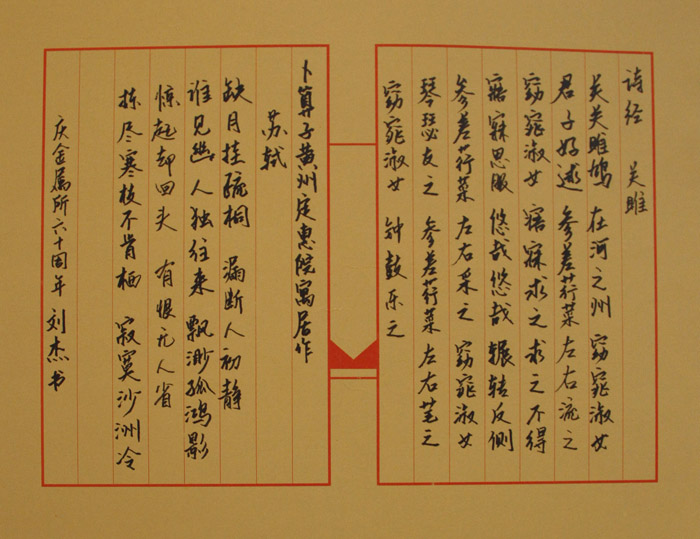 诗经 关雎
关关雎鸠 在河之州 窈窕淑女
君子好逑 参差荇菜 左右流之
窈窕淑女 寤寐求之 求之不得
寤寐思服 悠哉悠哉 辗转反侧
参差荇菜 左右采之 窈窕淑女
琴瑟友之 参差荇菜 左右芼之
窈窕淑女 钟鼓乐之
卜算子黄州定惠院寓居作
苏轼
缺月挂疏桐 漏断人初静
谁见幽人独往来 飘渺孤鸿影
惊起却回头 有恨无人省
拣尽寒枝不肯栖 寂寞沙洲冷
庆金属所六十周年 刘杰书